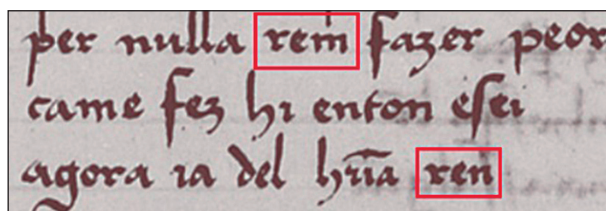 per nulla rem̄ fazer peor
came fez hi enton esei
agora ia del hūa ren